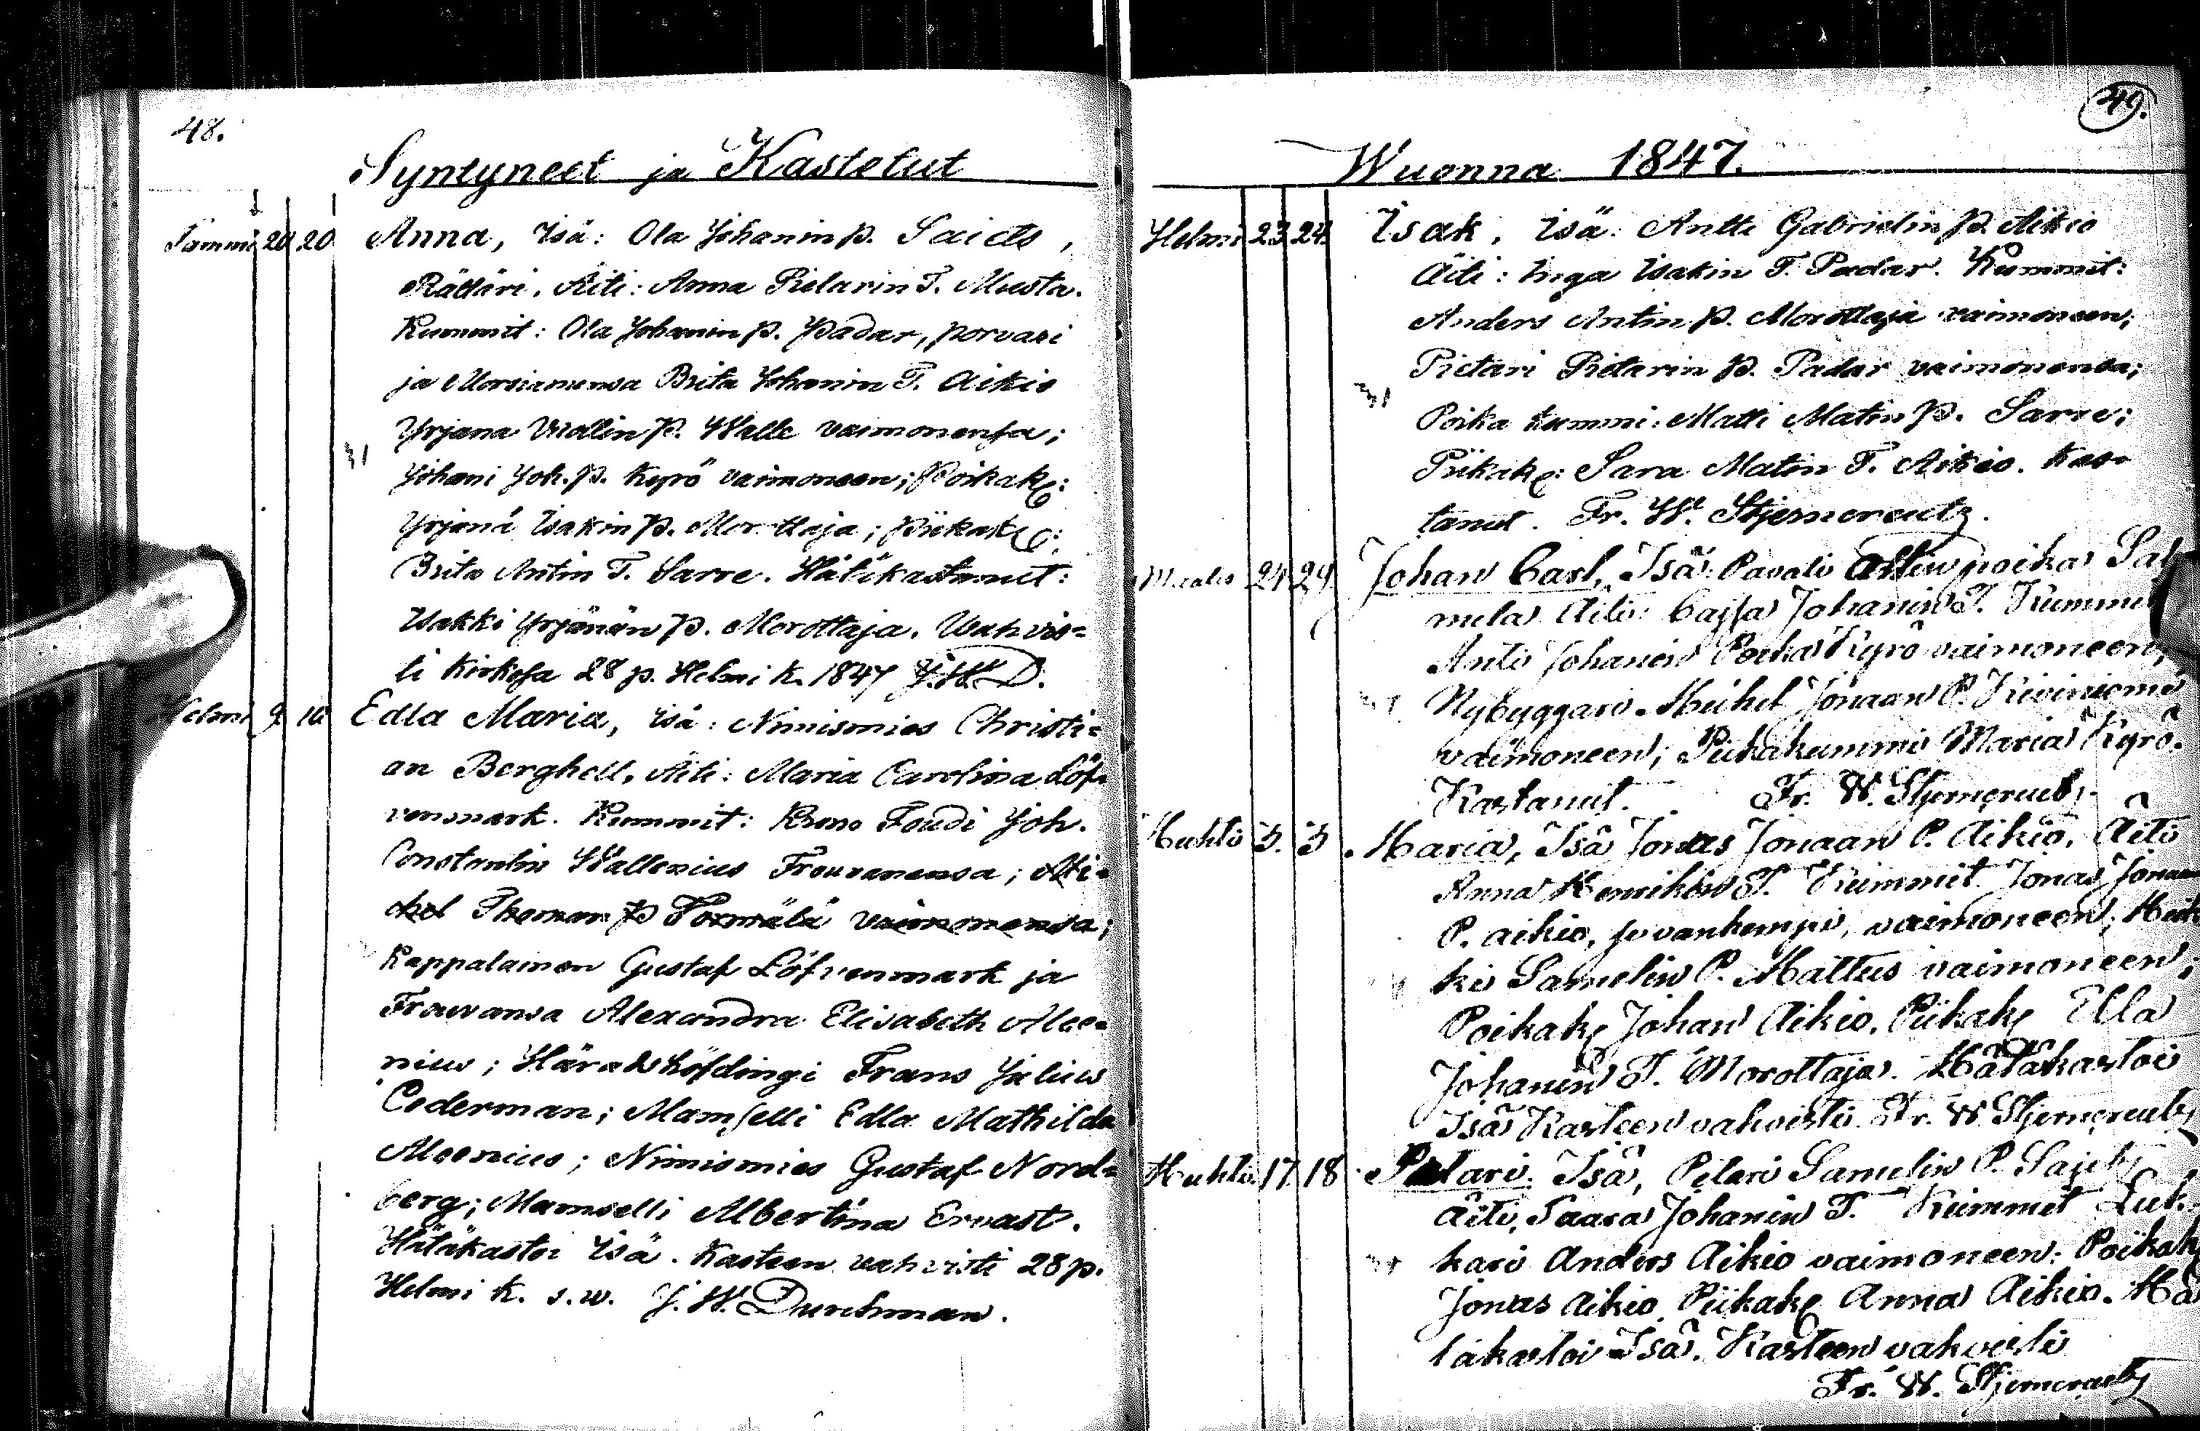 48.
Syntyneet ja Kastetut
Tammi 20 20 Anna, Isä: Ola Johanin p. Saiets,
Rättäri. Äiti: Anna Pietarin T. Musta.
Kummit: Ola Johanin p. Padar, porvari
ja Morsiamensa Brita Johanin T. Aikio
Yrjänä Uvollin p. Walle vaimonensa;
Johani Joh. p. Kyrö vaimoneen; Poikak:
Yrjänä Isakin p. Morottaja; Piikak:
Brita Antin T. Sarre. Hätäkastanut:
Isakki Yrjänän p. Morottaja. Wahvis=
ti kirkosa 28 p. Helmi k. 1847 J. W. D.
Helmi 9. 10 Edla Maria, isä: Nimismies Christi=
an Berghell, Äiti: Maria Carolina Löf=
venmark. Kummit: Kruno Foudi Joh.
Constantin Wallenius Frouvanensa; Mi=
chel Thoman p Törmälä vaimonensa;
Kappalainen Gustaf Löfvenmark ja
Frouvansa Alexandra Elisabeth Alce=
nius; Häradshöfdingi Frans Julius
Cederman; Mamselli Edla Mathilda
Alcenius; Nimismies Gustaf Nord=
berg; Mamselli Albertina Ervast.
Hätäkastoi Isä. Kasteen vahvisti 28 p.
Helmi k. s. w. J. W. Durchman.
49.
Wuonna 1847.
Helmi 23 24. Isak, isä: Antti Gabrielin p. Aikio
Äiti: Inga Isakin T. Padar. Kummit:
Anders Antin p. Morottaja vaimoneen;
Pietari Pietarin p. Padar vaimonensa;
Poika kummi: Matti Matin p. Sarre;
Piikak: Sara Matin T. Aikio. Kas=
tanut. Fr. W. Stjerncreutz.
Maalis 24 29 Johan Carl, Isä: Pavali poika Sal
mela Äiti: Cajsa Johanin T. Kummit
Anti Johanin Poika Kyrö vaimoneen,
Nybyggari Meihel Jonaan P. Kiviniemi
vaimoneen; Piikakummi Maria Kyrö.
Kastanut. Fr. W. Stjerncreutz
Huhti 3. 3 Maria, Isä Jonas Jonaan P. Aikio, Äiti
Anna Henrikin T. Kummit Jonas Jonaan
P. Aikio, vanhempi, vaimoneen; Heik
ki Samelin P. Mattus vaimoneen;
Poikak Johan Aikio, Piikak Ella
Johanin T. Morottaja. Hätäkastoi
Isä Kasteen vahvisti Fr. W. Stjerncreutz
Huhti 17 18 Petari. Isä, Petari Samelin P. Sajets
Äiti, Saara Johanin T. Kummit Luk=
kari Anders Aikio vaimoneen. Poikak
Jonas Aikio Piikak Anna Aikio. Hä
täkastoi Isä. Kasteen vahvisti
Fr. W. Stjerncreutz